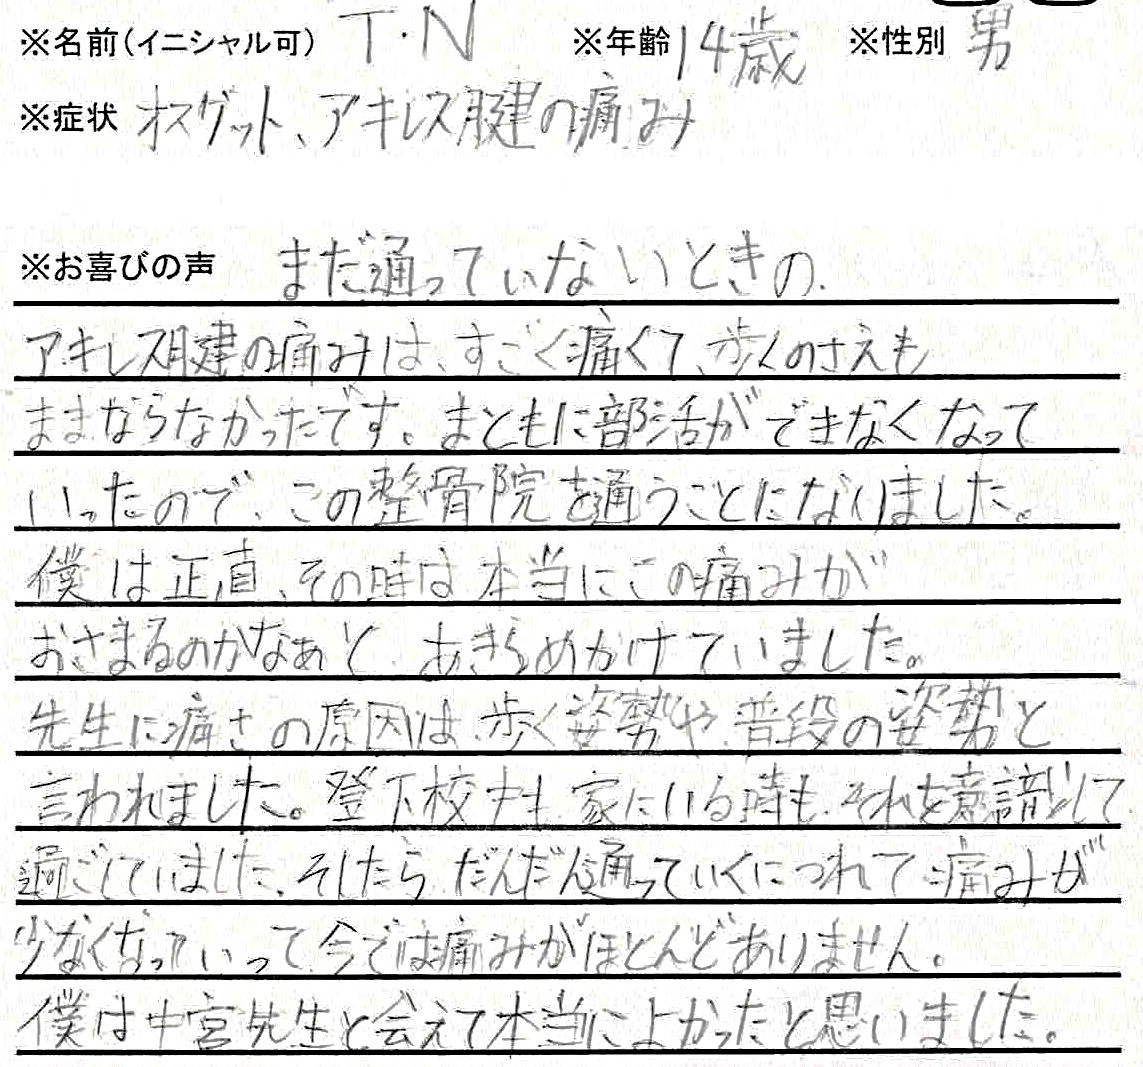 ※名前(イニシャル可) T・N ※年齢 14歳 ※性別 男
※症状 オスグット、アキレス腱の痛み
※お喜びの声 まだ通っていないときの
アキレス腱の痛みは、すごく痛くて、歩くのさえも
ままならなかったです。まともに部活ができなくなって
いったので、この整骨院を通うことになりました。
僕は正直、その時は本当にこの痛みが
おさまるのかなぁと、あきらめかけていました。
先生に痛さの原因は歩く姿勢や普段の姿勢と
言われました。登下校中も家にいる時もそれを意識して
過ごしていました。そしたら、だんだん通っていくにつれて痛みが
少なくなっていって今では痛みがほとんどありません。
僕は中宮先生と会えて本当によかったと思いました。